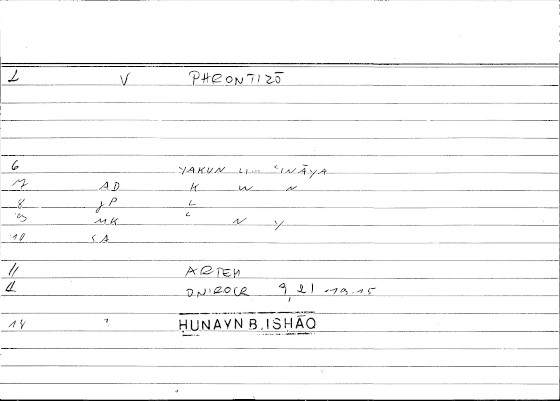 1 V PHRONTIZŌ
6 YAKUN LI- ʿINĀYA
7 AD K W N
8 JP L
9 MK ʿ N Y
10 SA
11 ARTEM
12 ONIROCR 9, 21
14 ḤUNAYN B. ISḤĀQ